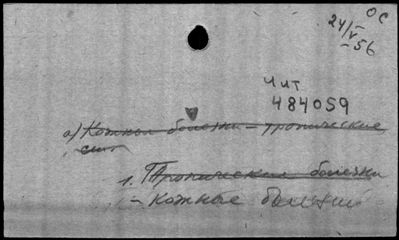 ОС
24/V
-56
Чит
484059
а) Кожные болезни - тропические
1. Тропические болезни
- кожные болезни